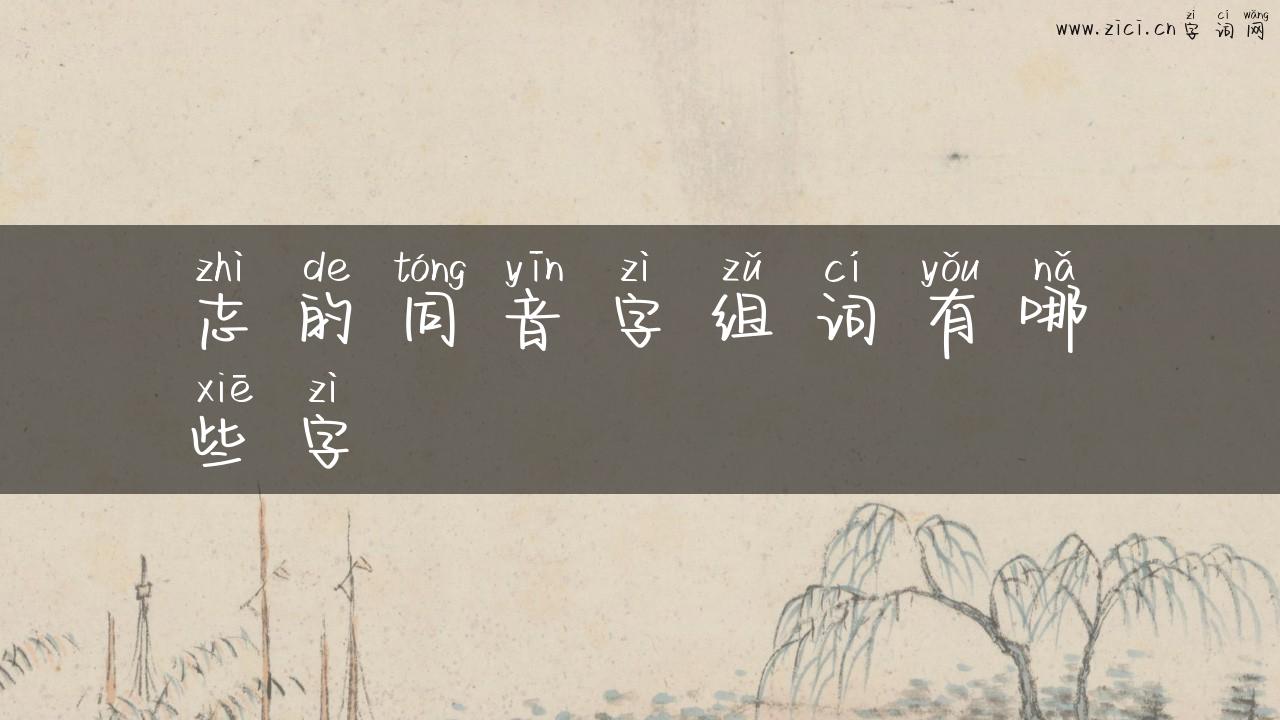 zì cí wǎng
www.zici.cn 字词网
zhì de tóng yīn zì zǔ cí yǒu nǎ
志的同音字组词有哪
xiē zì
些字